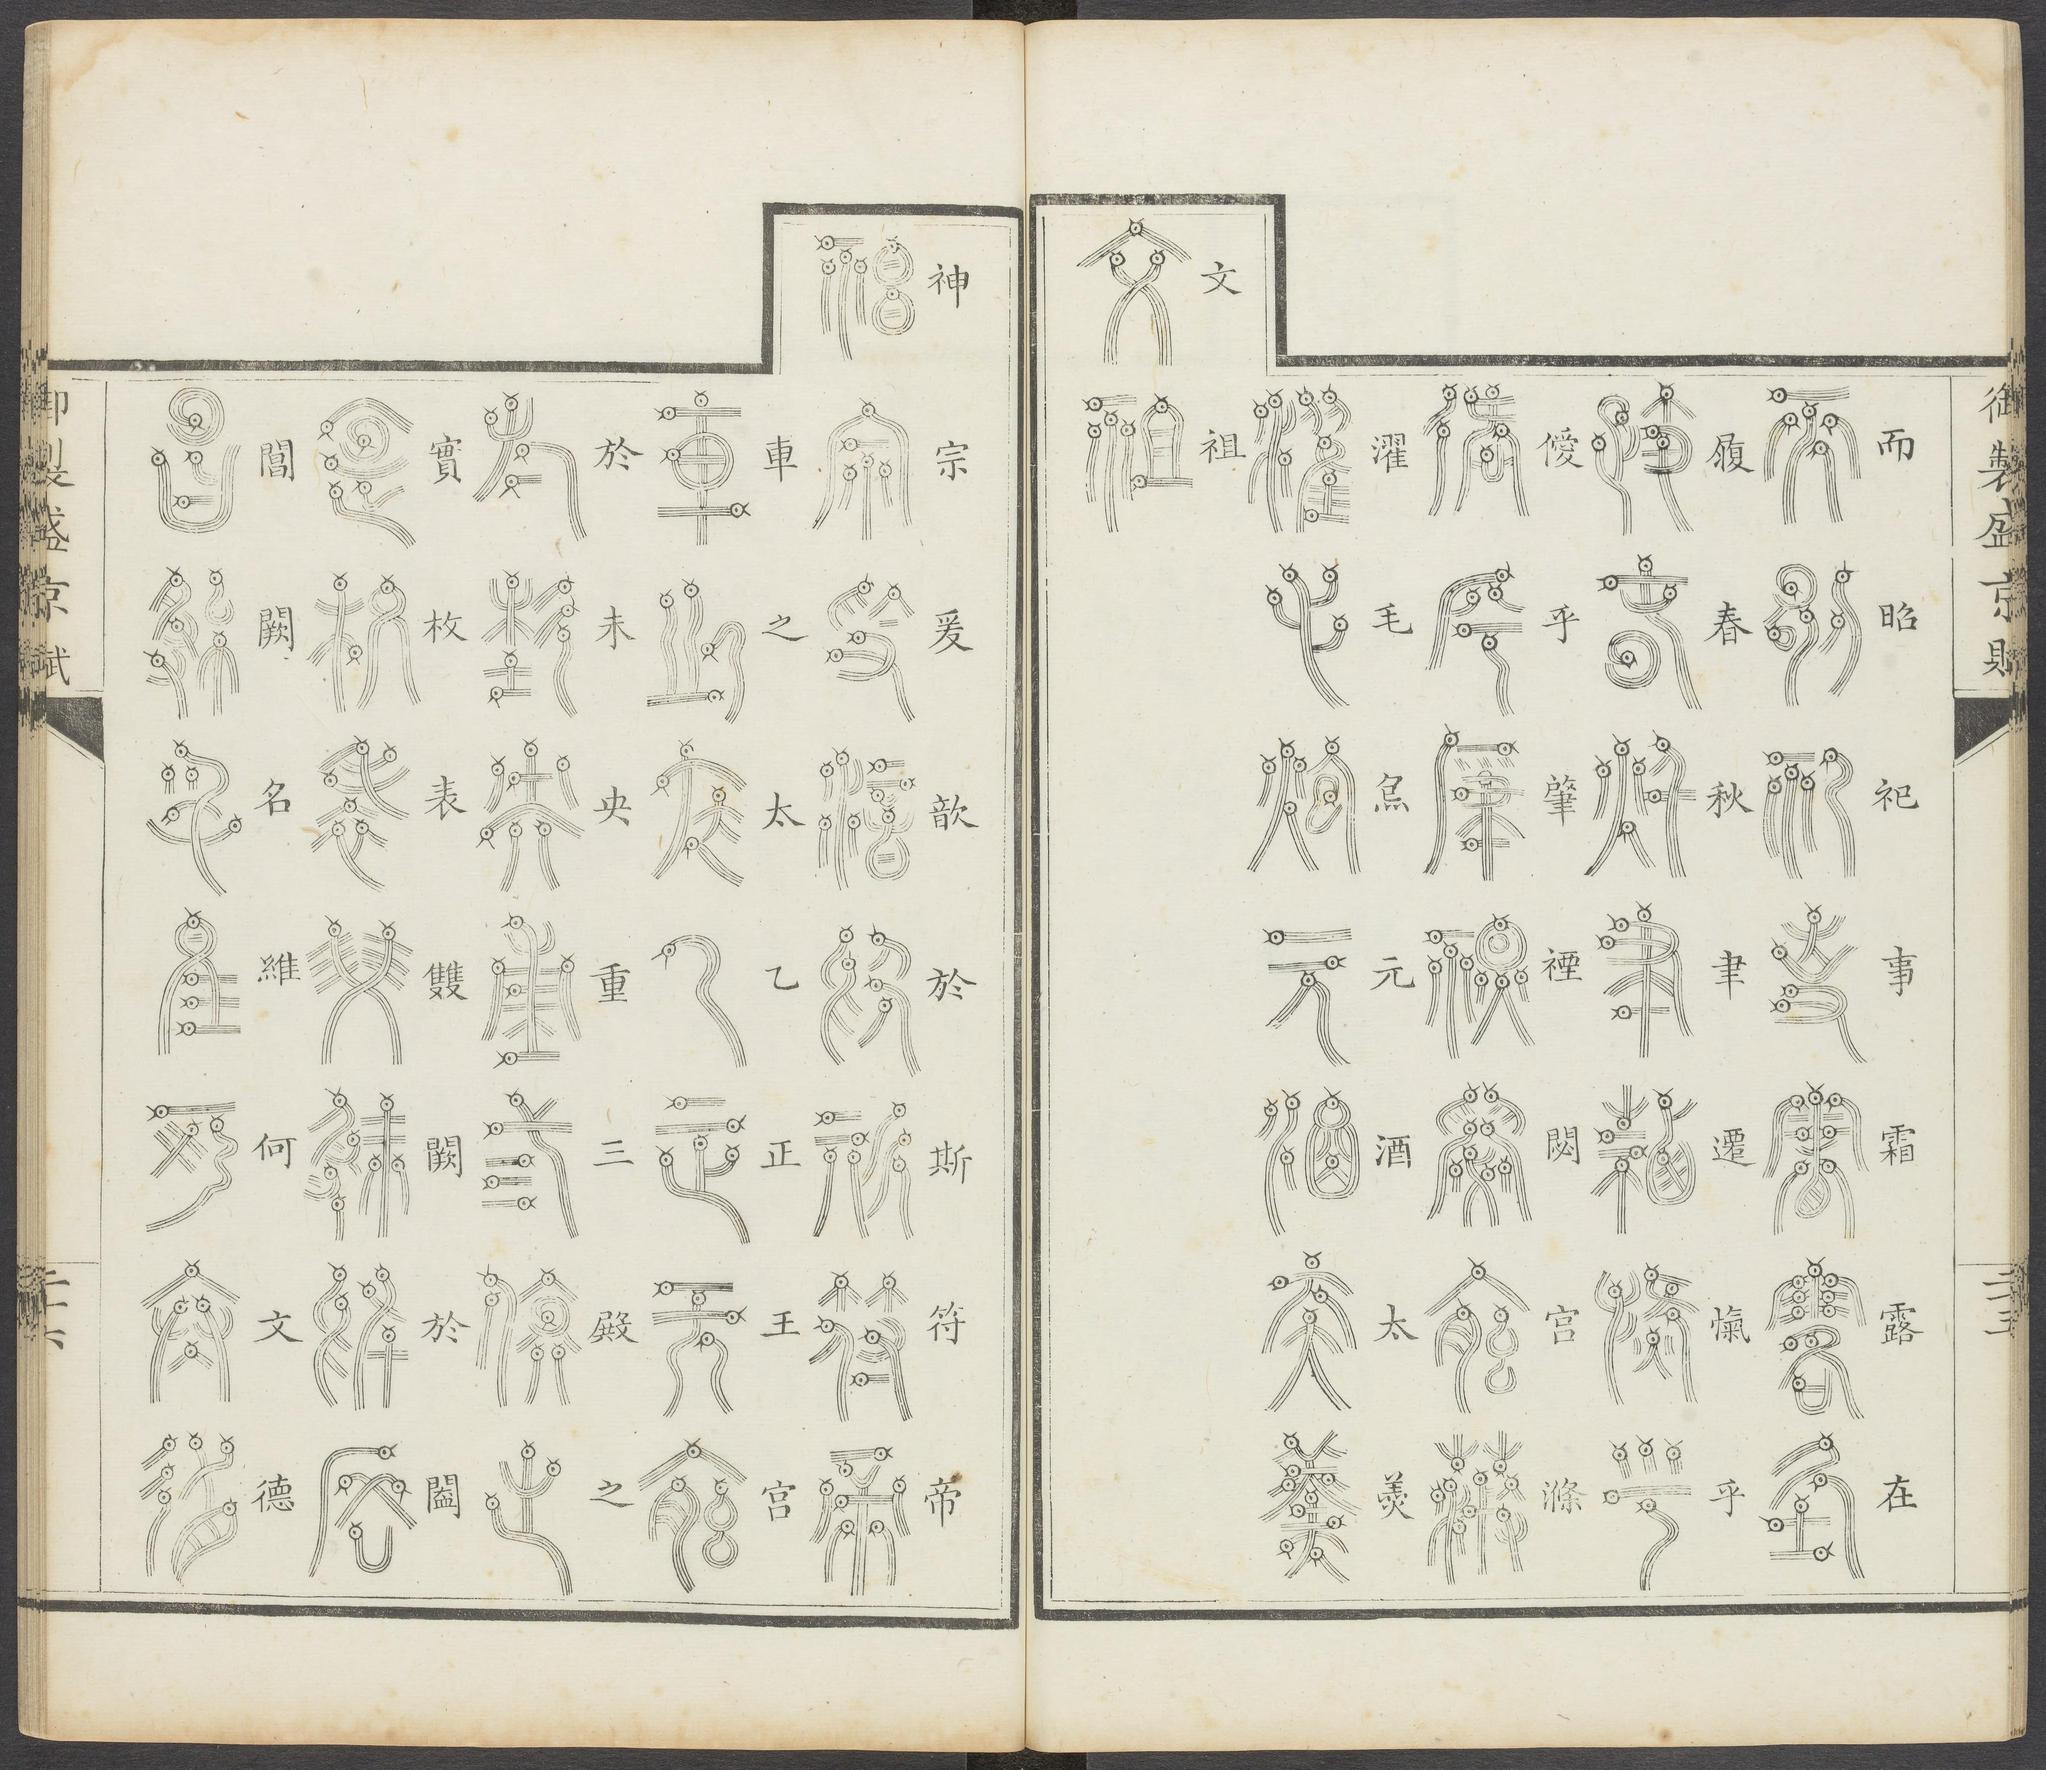 御製盛京賦
而昭祀事霜露在
履春秋聿遷愾乎
僾乎肇禋閟宫滌
濯毛炰元酒太羹
文祖
神宗爰歆於斯符帝
車之太乙正王宫
於未央重三殿之
實枚表雙闕於闔
閶闕名維何文德
御製盛京賦
二十六